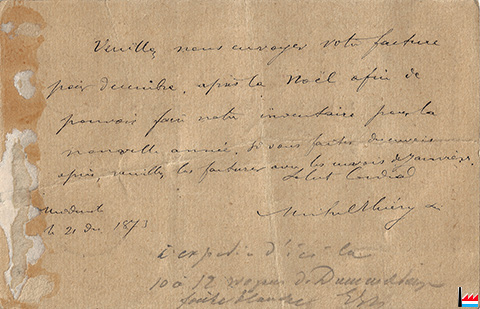 Veuillez nous envoyer votre facture
pour decembre, après la Noël afin de
pouvoir faire notre inventaire pour la
nouvelle année. Si vous faites des envois
après, veuillez les facturer avec les envois de Janvier.
Salut Cordial
le 21 dec 1873
Michel Thiéry
à expedier d'ici la
10 à 12 wagons de